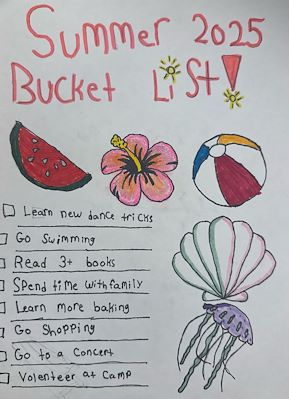 Summer 2025
Bucket List!
Learn new dance tricks
Go Swimming
Read 3+ books
Spend time with family
Learn more baking
Go Shopping
Go to a Concert
Volenteer at Camp